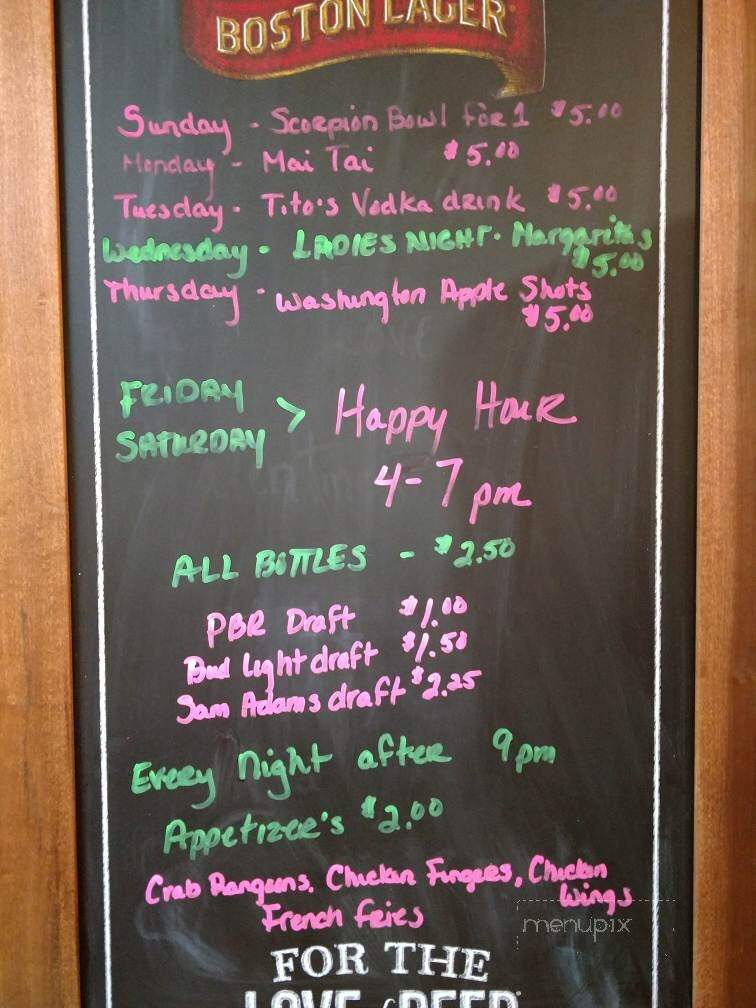 BOSTON LAGER
Sunday - Scorpion Bowl for 1 $5.00
Monday - Mai Tai $5.00
Tuesday - Tito's Vodka drink $5.00
Wednesday - LADIES NIGHT - Margaritas
$5.00
Thursday - Washington Apple Shots
$5.00
FRIDAY
SATURDAY > Happy Hour
4-7 pm
ALL BOTTLES - $2.50
PBR Draft $1.00
Bud Light draft $1.50
Sam Adams draft $2.25
Every Night after 9pm
Appetizer's $2.00
Crab Rangoons, Chicken Fingers, Chicken
Wings
French Fries
menupix
FOR THE
LOVE of BEER